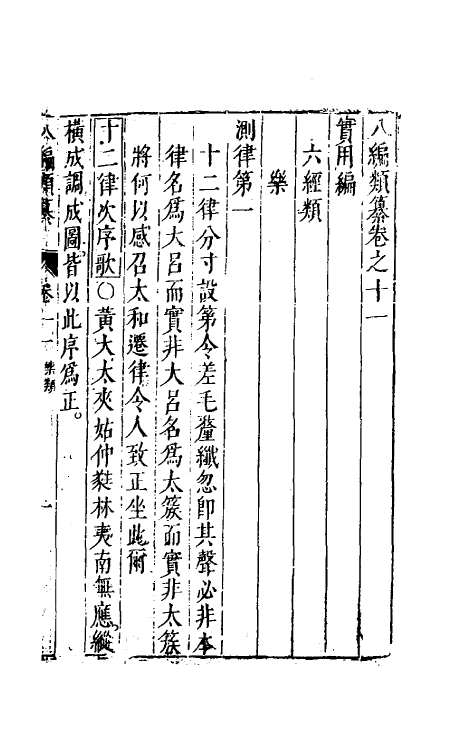 八編類纂卷之十一
實用編
六經類
樂
測律第一
十二律分寸設第令差毛釐纖忽卽其聲必非本
律名爲大呂而實非大呂名爲太簇而實非太簇
將何以感召太和遷律令人致正坐此爾
十二律次序歌○黃大太夾姑仲蕤林夷南無應縱
橫成調成圖皆以此序爲正。
八編類纂 卷十一 樂類 一